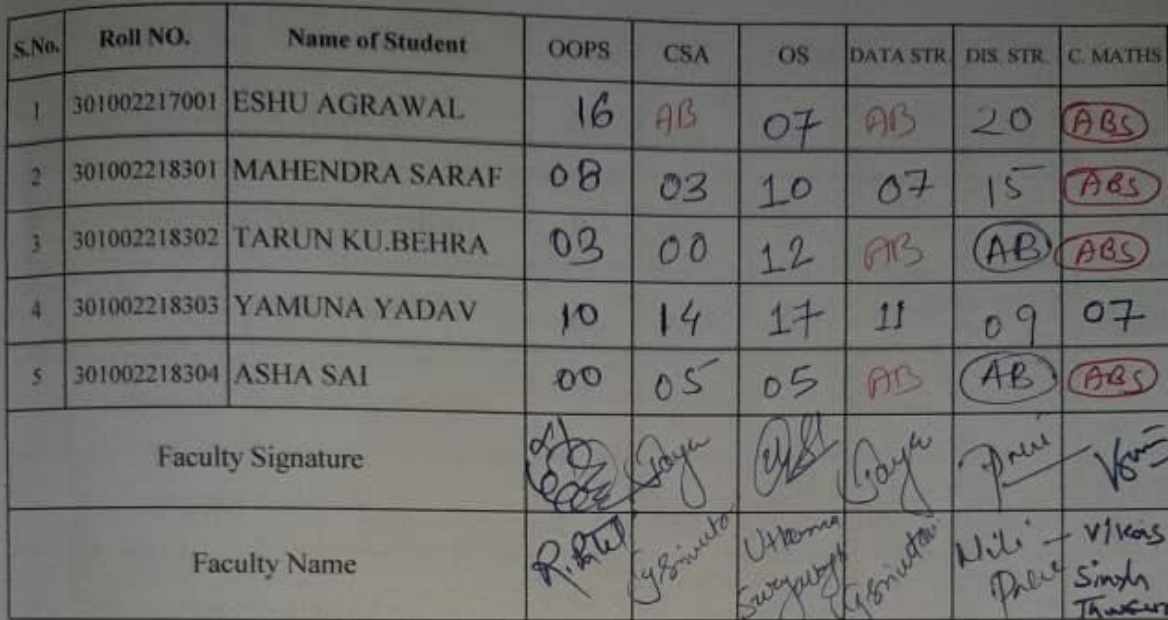 S.No. Roll NO. Name of Student OOPS CSA OS DATA STR. DIS. STR. C. MATHS
1 301002217001 ESHU AGRAWAL 16 AB 07 AB 20 ABS
2 301002218301 MAHENDRA SARAF 08 03 10 07 15 ABS
3 301002218302 TARUN KU.BEHRA 03 00 12 AB AB ABS
4 301002218303 YAMUNA YADAV 10 14 17 11 09 07
5 301002218304 ASHA SAI 00 05 05 AB AB ABS
Faculty Signature
Faculty Name R. Patel Vikas
Singh